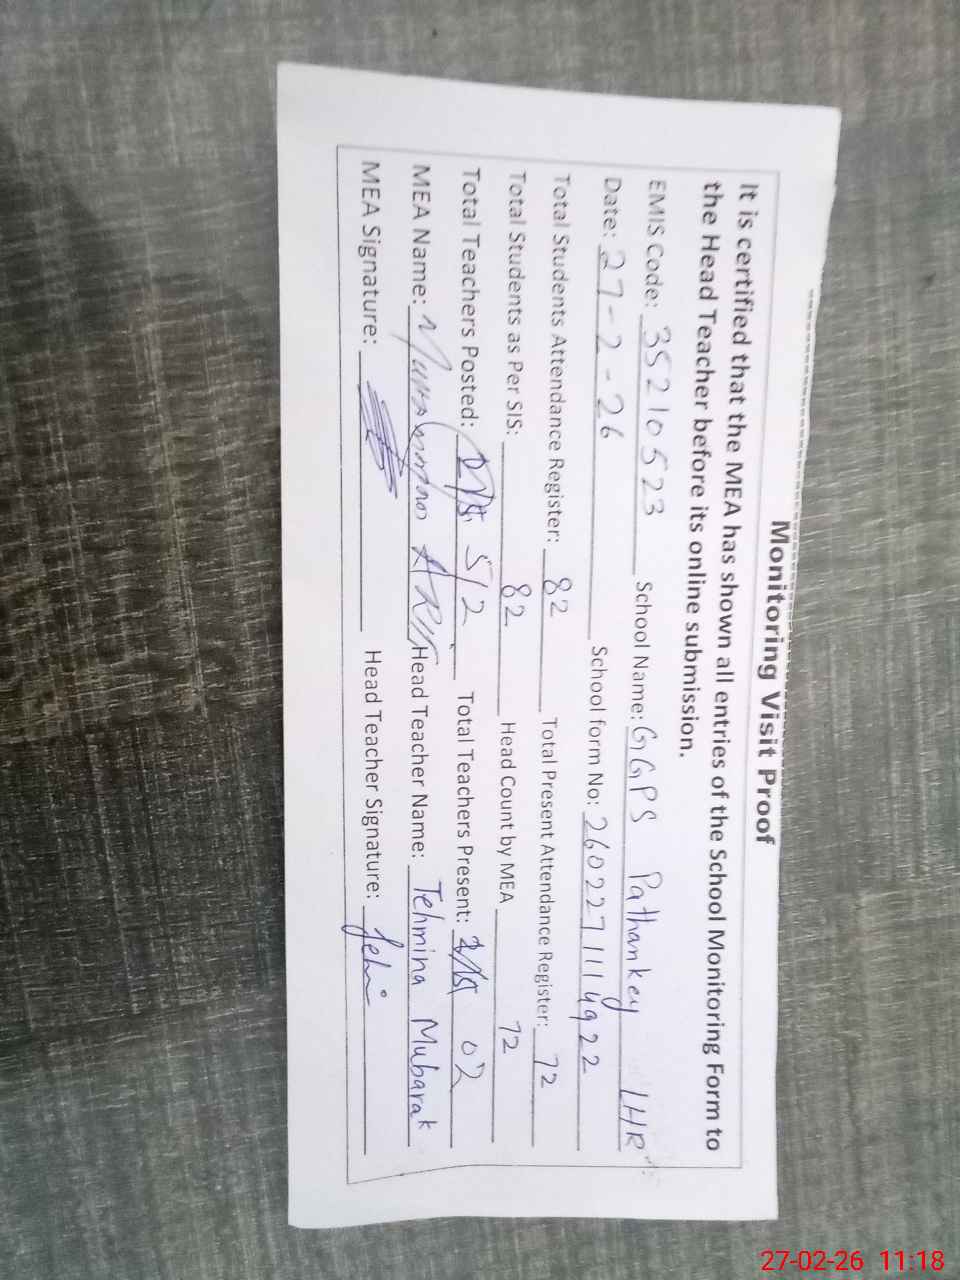 Monitoring Visit Proof
It is certified that the MEA has shown all entries of the School Monitoring Form to
the Head Teacher before its online submission.
EMIS Code: 35210523 School Name: GGPS Pathankey LHR
Date: 27-2-26 School form No: 2602271114922
Total Students Attendance Register: 82 Total Present Attendance Register: 72
Total Students as Per SIS: 82 Head Count by MEA 72
Total Teachers Posted: 5/2 Total Teachers Present: 02
MEA Name: Head Teacher Name: Tehmina Mubarak
MEA Signature: Head Teacher Signature:
27-02-26 11:18